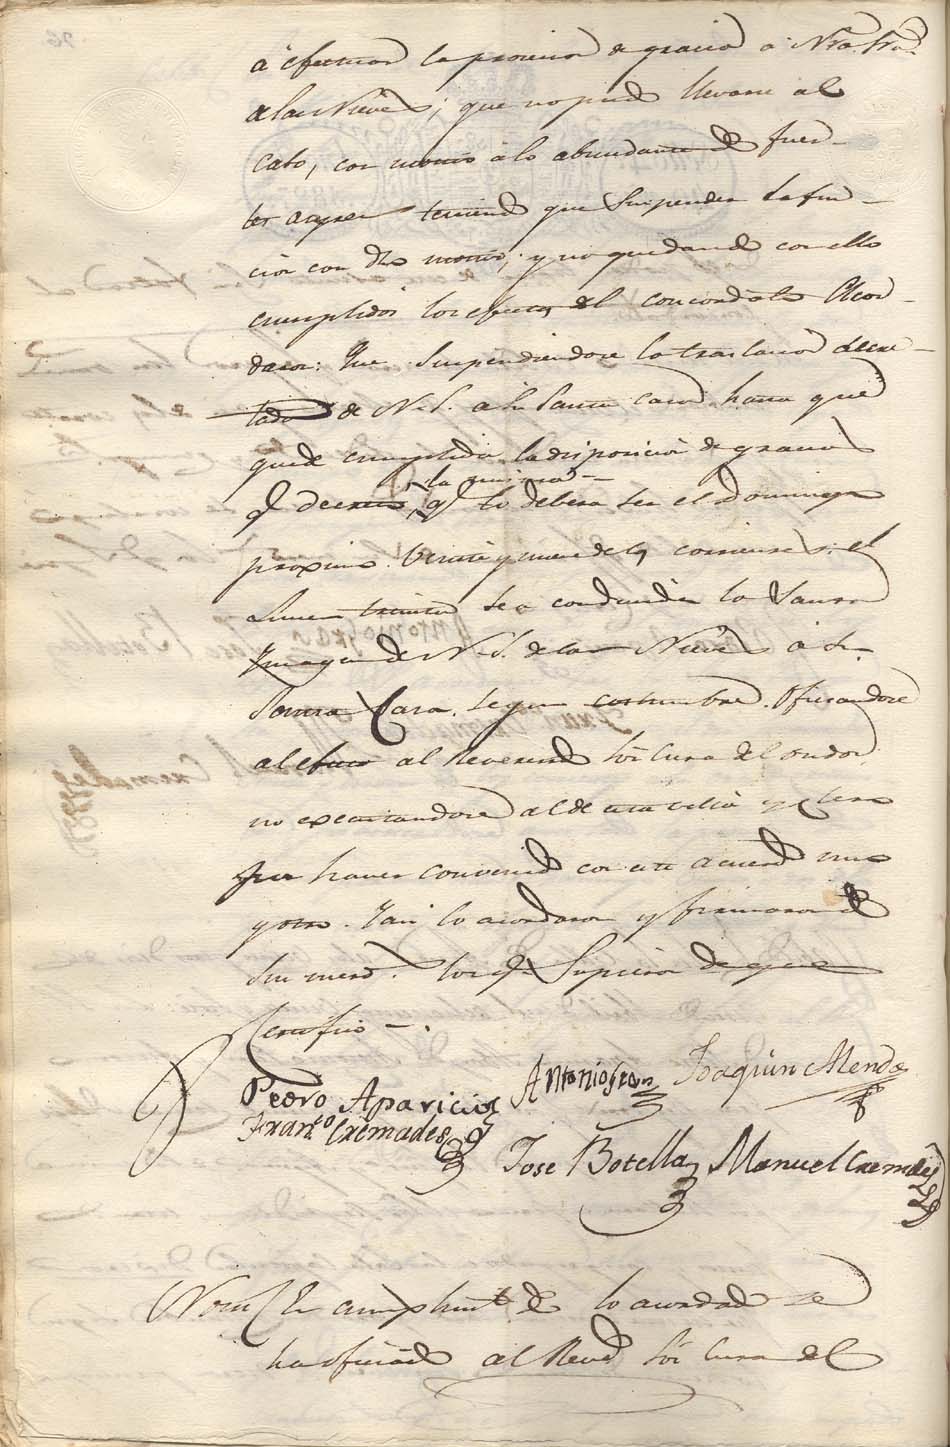 á efectuar la procesion de gracias á Ntra. Sra.
de las Nieves; que no pudo llevarse al
cabo, con motivo á lo abundante de fuer-
tes ayres teniendo que suspender la fun-
cion con dho motivo; y no quedando con ello
cumplidos los efectos del concordato Acor-
daron: Que suspendiendose la traslacion decre-
tada de N. S. á la Santa Casa hasta que
quede cumplida la disposicion de gracias
q decreto, la misma q lo debera ser el Domingo
proximo Veinte y nueve de los corrientes; el
Lunes treinta sea conducida la Santa
Ymagen de N. S. de las Nieves á su
Santa Casa segun costumbre. Oficiandose
al efecto al Reverendo Sor Cura del
no executandose al de esta villa y clero
por haver convenido con este acuerdo uno
y otro. Y asi lo acordaron y firmaron de
sus mersd. los q. Supieron de que
Certifico -.
Pedro Aparicio Antonio Joaquin Mendo
Franco. Cremades
Jose Botella Manuel Cremades
Nota En cumplimto de lo acordado se
ha oficiado al Revdo Sor Cura del